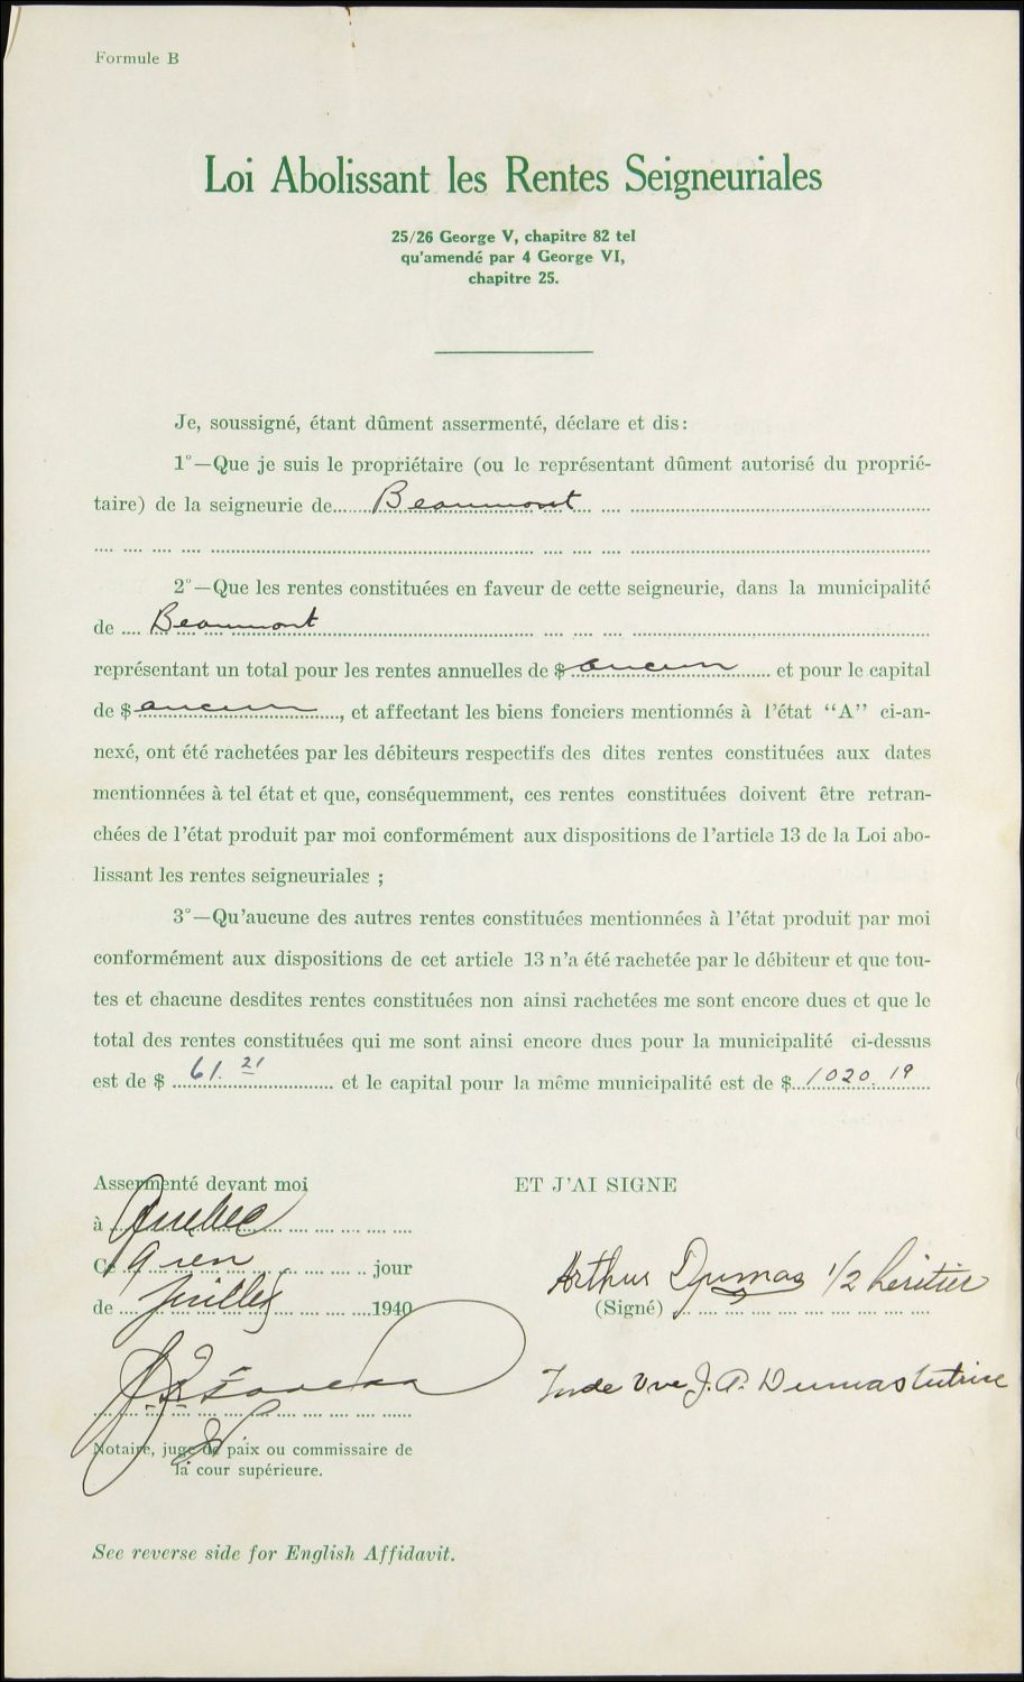 Formule B
Loi Abolissant les Rentes Seigneuriales
25/26 George V, chapitre 82 tel
qu'amendé par 4 George VI,
chapitre 25.
Je, soussigné, étant dûment assermenté, déclare et dis:
1°—Que je suis le propriétaire (ou le représentant dûment autorisé du proprié-
taire) de la seigneurie de Beaumont
2°—Que les rentes constituées en faveur de cette seigneurie, dans la municipalité
de Beaumont
représentant un total pour les rentes annuelles de $ aucun et pour le capital
de $ aucun, et affectant les biens fonciers mentionnés à l'état "A" ci-an-
nexé, ont été rachetées par les débiteurs respectifs des dites rentes constituées aux dates
mentionnées à tel état et que, conséquemment, ces rentes constituées doivent être retran-
chées de l'état produit par moi conformément aux dispositions de l'article 13 de la Loi abo-
lissant les rentes seigneuriales ;
3°—Qu'aucune des autres rentes constituées mentionnées à l'état produit par moi
conformément aux dispositions de cet article 13 n'a été rachetée par le débiteur et que tou-
tes et chacune desdites rentes constituées non ainsi rachetées me sont encore dues et que le
total des rentes constituées qui me sont ainsi encore dues pour la municipalité ci-dessus
est de $ 61.21 et le capital pour la même municipalité est de $ 1020.19
Assermenté devant moi
ET J'AI SIGNE
à Québec
Ce jour
Arthur Dumas 1/2 héritier
de Juillet 1940
(Signé)
Vve J. A. Dumas tutrice
Notaire, juge de paix ou commissaire de
la cour supérieure.
See reverse side for English Affidavit.